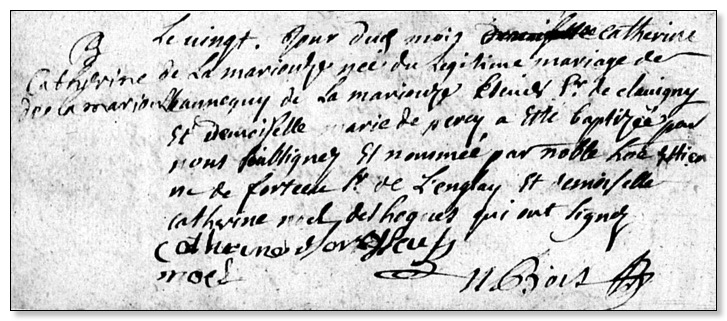 B
Catherine
de la mariouze
Le vingt. Jour dud mois demoiselle catherine
de La mariouze née du Legitime mariage de
Jeannequy de La mariouze Escuier Sr de clavigny
Et demoiselle marie de percy a Esté baptizée par
nous soubsigney Et nommée par noble ho͠e Estien
ne de forteau Sr de L'englay Et demoiselle
catherine noel des hogues qui ont signey
Catherine
noel